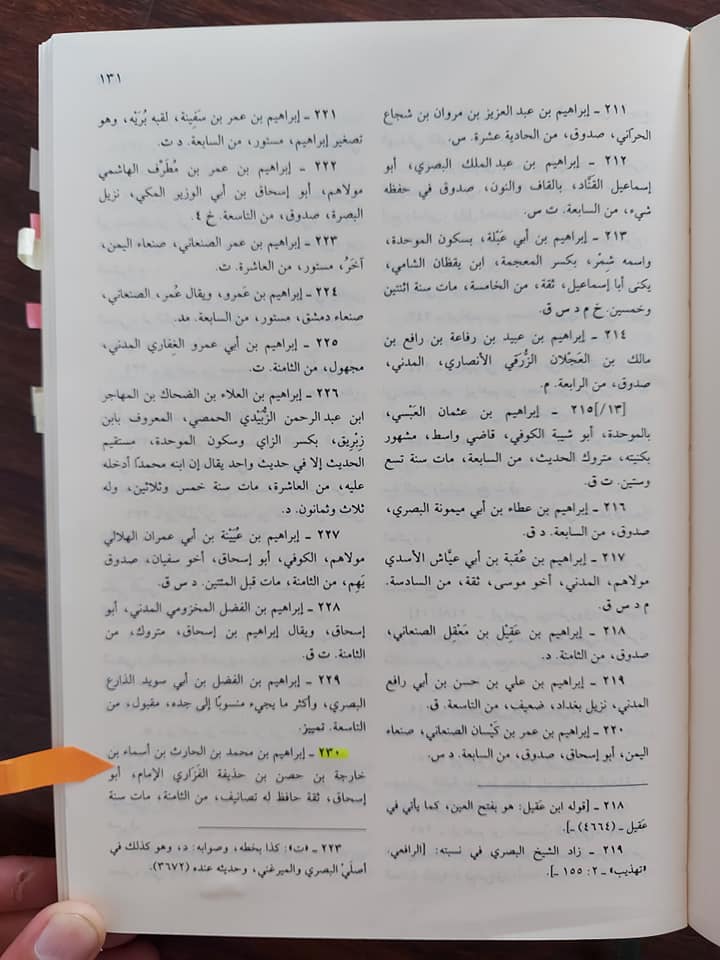 ١٣١
٢١١ ـ إبراهيم بن عبد العزيز بن مروان بن شجاع
الحراني، صدوق، من الحادية عشرة. س.
٢١٢ ـ إبراهيم بن عبد الملك البصري، أبو
إسماعيل القَنَّاد، بالقاف والنون، صدوق في حفظه
شيء، من السابعة. ت س.
٢١٣ ـ إبراهيم بن أبي عَبْلة، بسكون الموحدة،
واسمه شِمْر، بكسر المعجمة، ابن يقظان الشامي،
يكنى أبا إسماعيل، ثقة، من الخامسة، مات سنة اثنتين
وخمسين. خ م د س ق.
٢١٤ ـ إبراهيم بن عبيد بن رفاعة بن رافع بن
مالك بن العَجْلان الزُّرَقي الأنصاري، المدني،
صدوق، من الرابعة. م.
[١٣/أ] ٢١٥ ـ إبراهيم بن عثمان العَبْسي،
بالموحدة، أبو شيبة الكوفي، قاضي واسط، مشهور
بكنيته، متروك الحديث، من السابعة، مات سنة تسع
وستين. ت ق.
٢١٦ ـ إبراهيم بن عطاء بن أبي ميمونة البصري،
صدوق، من السابعة. د ق.
٢١٧ ـ إبراهيم بن عُقبة بن أبي عيَّاش الأسدي
مولاهم، المدني، أخو موسى، ثقة، من السادسة.
م د س ق.
٢١٨ ـ إبراهيم بن عَقِيْل بن مَعْقِل الصنعاني،
صدوق، من الثامنة. د.
٢١٩ ـ إبراهيم بن علي بن حسن بن أبي رافع
المدني، نزيل بغداد، ضعيف، من التاسعة. ق.
٢٢٠ ـ إبراهيم بن عمر بن كَيْسان الصنعاني، صنعاء
اليمن، أبو إسحاق، صدوق، من السابعة. د س.
٢١٨ ـ [قوله ابن عَقيل: هو بفتح العين، كما يأتي في
عقيل ـ (٤٦٦٤) ـ].
٢١٩ ـ زاد الشيخ البصري في نسبته: [الرافعي،
«تهذيب» ـ ٢: ١٥٥ ـ].
٢٢١ ـ إبراهيم بن عمر بن سَفِينة، لقبه بُرَيْه، وهو
تصغير إبراهيم، مستور، من السابعة. د ت.
٢٢٢ ـ إبراهيم بن عمر بن مُطَرِّف الهاشمي
مولاهم، أبو إسحاق بن أبي الوزير المكي، نزيل
البصرة، صدوق، من التاسعة. خ ٤.
٢٢٣ ـ إبراهيم بن عمر الصنعاني، صنعاء اليمن،
آخَرُ، مستور، من العاشرة. ت.
٢٢٤ ـ إبراهيم بن عَمرو، ويقال عُمر، الصنعاني،
صنعاء دمشق، مستور، من السابعة. مد.
٢٢٥ ـ إبراهيم بن أبي عمرو الغِفاري المدني،
مجهول، من الثامنة. ت.
٢٢٦ ـ إبراهيم بن العلاء بن الضحاك بن المهاجر
ابن عبد الرحمن الزُّبَيْدي الحمصي، المعروف بابن
زِبْرِيق، بكسر الزاي وسكون الموحدة، مستقيم
الحديث إلا في حديث واحد يقال إن ابنه محمدًا أدخله
عليه، من العاشرة، مات سنة خمس وثلاثين، وله
ثلاث وثمانون. د.
٢٢٧ ـ إبراهيم بن عُيَيْنة بن أبي عمران الهلالي
مولاهم، الكوفي، أبو إسحاق، أخو سفيان، صدوق
يَهِم، من الثامنة، مات قبل المئتين. د س ق.
٢٢٨ ـ إبراهيم بن الفضل المخزومي المدني، أبو
إسحاق، ويقال إبراهيم بن إسحاق، متروك، من
الثامنة. ت ق.
٢٢٩ ـ إبراهيم بن الفضل بن أبي سويد الذارع
البصري، وأكثر ما يجيء منسوبًا إلى جده، مقبول، من
التاسعة. تمييز.
٢٣٠ ـ إبراهيم بن محمد بن الحارث بن أسماء بن
خارجة بن حصن بن حذيفة الفَزَاري الإمام، أبو
إسحاق، ثقة حافظ له تصانيف، من الثامنة، مات سنة
٢٢٣ ـ «ت»: كذا بخطه، وصوابه: د، وهو كذلك في
أصلَيْ البصري والميرغني، وحديثه عنده (٣٦٧٢).